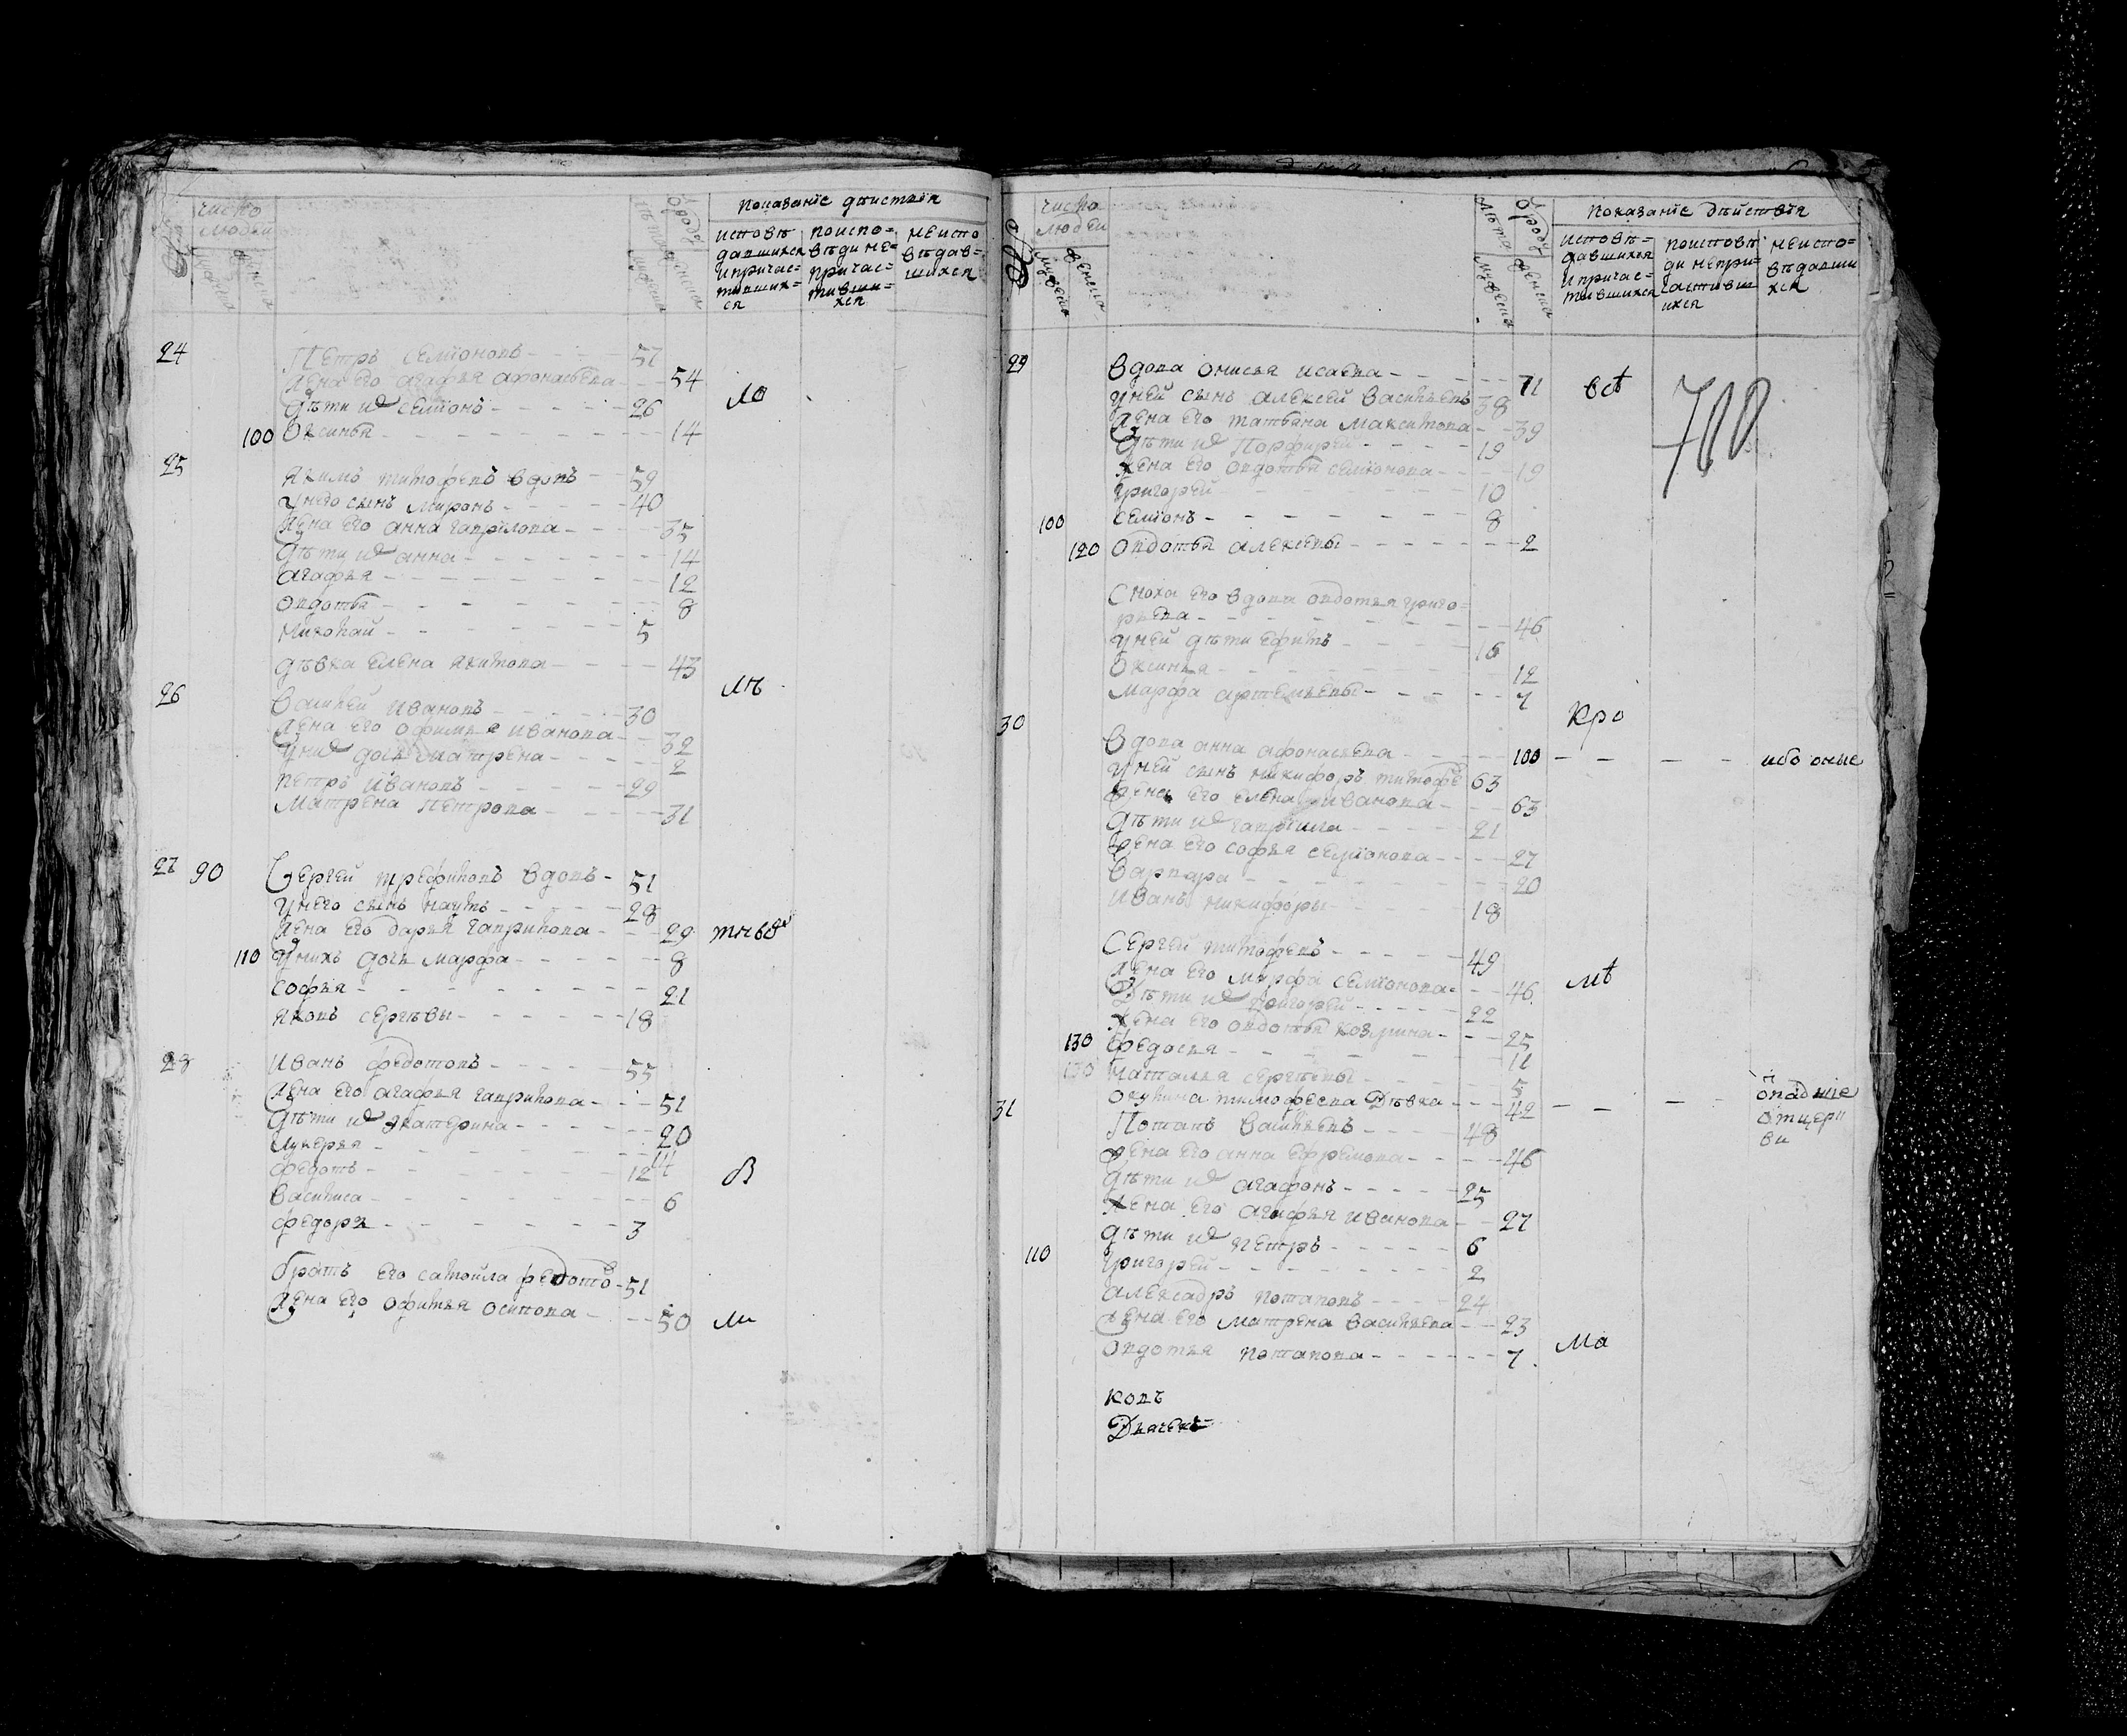 число
людей
Показанїе дѣиствїя
исповѣ
давшихся
и причас=
тивших=
ся
поиспо=
вѣди не=
причас=
тивши=
хся
неиспо
вѣдав=
шихся
24 Петръ семїоновъ 57
жена его агафья афонасьева 54
дѣти их семїонъ 26
ло
100 Оксинья 14
25 яким тимофеевъ вдовъ 59
у него сынъ миронъ 40
жена его анна гаврилова 35
дѣти их анна 14
агафья 12
овдотья 8
николай 5
дѣвка елена якимова 43
лѣ
26 Василей ивановъ 30
жена его офимья иванова 32
у них дочь матрена 2
петръ ивановъ 29
Матрена петрова 31
27 90 Сергей трефиловъ вдовъ 51
у него сынъ наумъ 28
жена его дарья гаврилова 29
110 у нихъ дочь марфа 8
софья 21
яковъ сергѣевы 18
28 иванъ федотовъ 55
жена его агафья гаврилова 51
дѣти их екатерина 20
лукерья 14
федотъ 12
в
василиса 6
федоръ 3
братъ его самойла федото 51
жена его офимья осипова 50
ли
число
людей
Показанїе дѣиствїя
исповѣ=
давшихся
и причас=
тившихся
поисповѣ
ди непри=
частивш
ихся
неиспо=
вѣдавши
хся
29 вдова онисья исаева 71 всѣ
у ней сынъ алексей васильевъ 38
жена его татьяна максимова 39
700
дѣти их порфирей 19
жена его овдотья семїонова 19
григорей 10
100 семїонъ 8
120 овдотья алексевы 2
Сноха его вдова овдотья григо=
рьева 46
у ней дѣти ефимъ 16
Оксинья 12
марфа артемьевы 7
кро
30 вдова анна афонасьева 100 ибо оные
у ней сынъ никифоръ тимофе 63
жена его елена иванова 63
дѣти их гаврила 21
жена его софья семїонова 27
варвара 20
иванъ никифоры 18
Сергей тимофеевъ 49
жена его марфа семїонова 46
мѣ
дѣти их григорей 22
жена его овдотья козмина 25
130 федосья 11
130 наталья сергѣевы 5
окулина тимофеева дѣвка 42
31 Потапъ васильевъ 48
жена его анна ефремова 46
дѣти их агафонъ 25
жена его агафья иванова 27
дѣти их петръ 6
110 григорей 2
алексадръ потаповъ 24
жена его матрена васильева 23
овдотья потапова 7
ма
ковъ
Дьячекъ